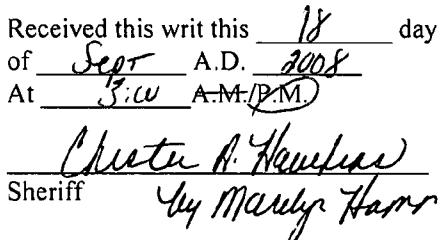 Received this writ this 18 day
of Sept A.D. 2008
At 3:00 A.M./P.M.
Chester A. Hawkins
Sheriff by Marilyn Hamm